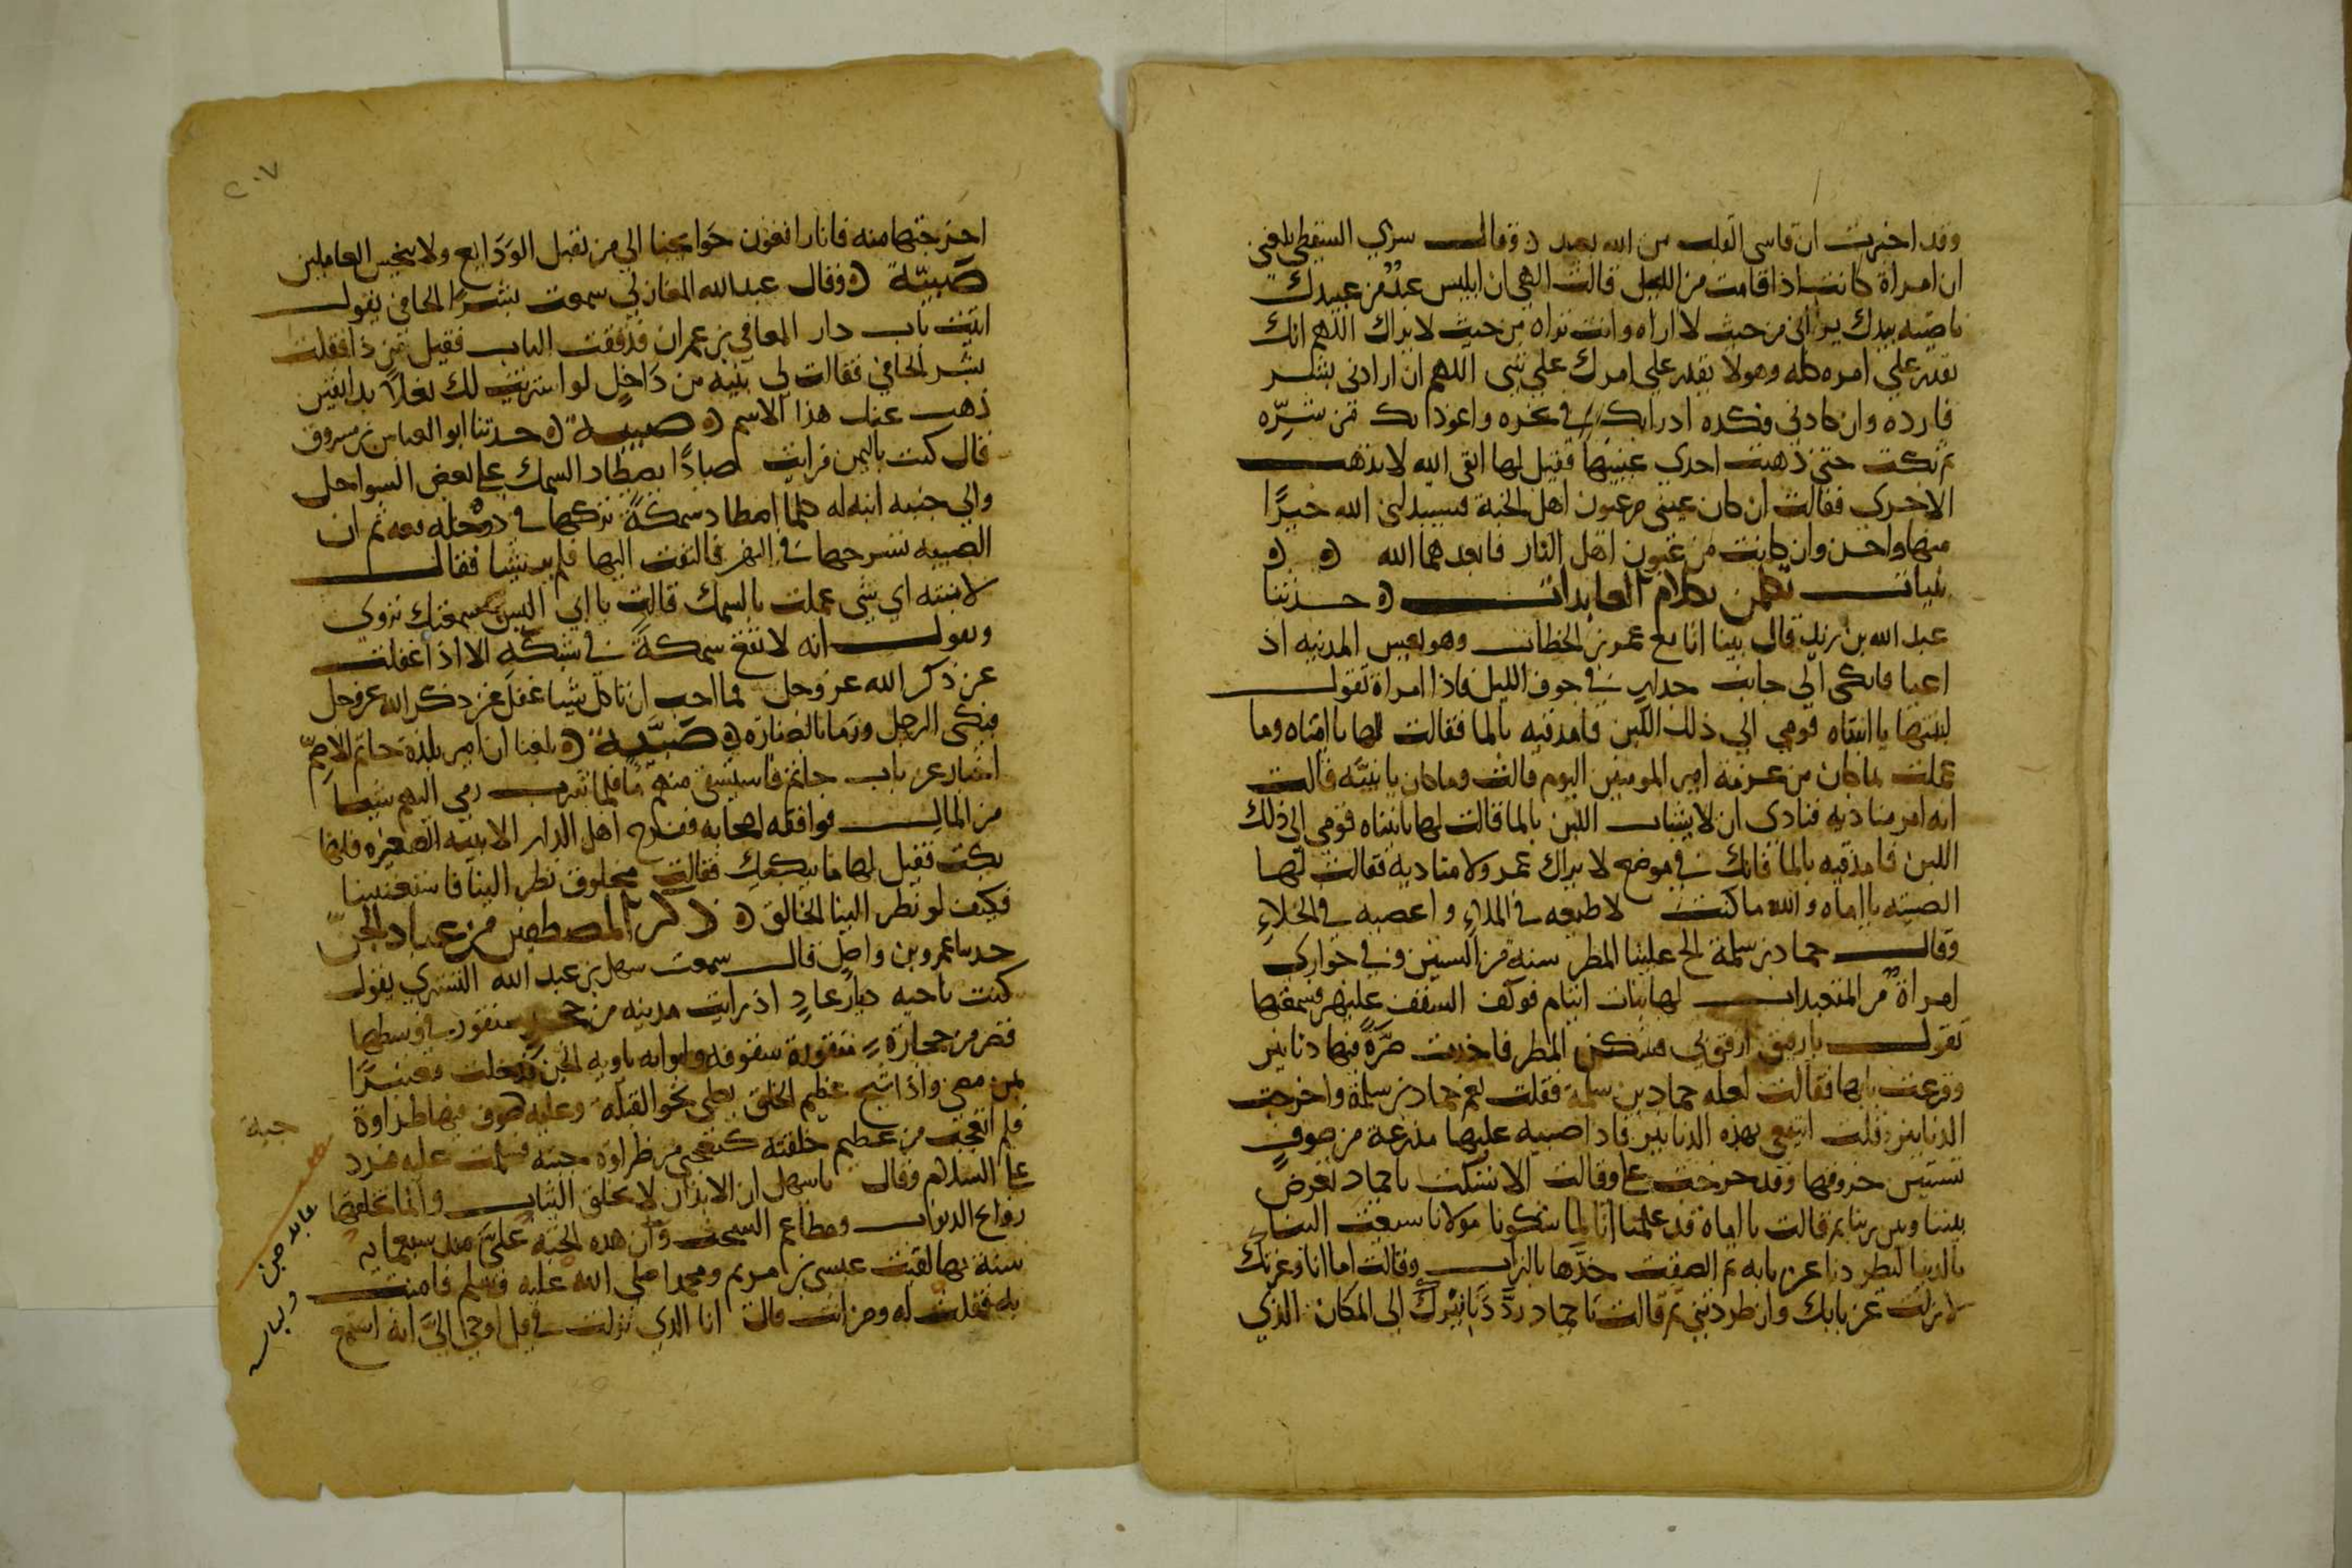 وقد اخبرت ان قاسي القلب من الله بعيد ه وقال سري السقطي بلغني
ان امراة كانت اذا قامت من الليل قالت الهي ان ابليس عبد من عبيدك
ناصيته بيدك يراني من حيث لا اراه وانت تراه من حيث لا يراك اللهم انك
تقدر علي امره كله وهو لا يقدر علي امرك علي شي اللهم ان ارادني بشر
فارده وان كادني فكده ادرا بك في نحره واعوذ بك من شره
ثم بكت حتي ذهبت احدي عينيها فقيل لها اتقي الله لا تذهب
الاخري فقالت ان كان عيني من عيون اهل الجنة فسيبدلني الله خيرا
منها واحسن وان كانت من عيون اهل النار فابعدهما الله ه ه
بنيات تكلمن بكلام العابدات ه حدثنا
عبد الله بن زيد قال بينا انا مع عمر بن الخطاب وهو يعس المدينه اذ
اعيا فاتكي الي جانب جدار في جوف الليل فاذا امراة تقول
لبنتها يا ابنتاه قومي الي ذلك اللبن فامذقيه بالما فقالت لها يا امتاه وما
علمت بما كان من عزمة امير المومنين اليوم قالت وما كان يا بنيه قالت
انه امر مناديه فنادي ان لا يشاب اللبن بالما قالت لها يا بنتاه قومي الي ذلك
اللبن فامذقيه بالما فانك في موضع لا يراك عمر ولا مناديه فقالت لها
الصبيه يا اماه والله ما كنت لاطيعه في الملاء واعصيه في الخلاء
وقال حماد بن سلمة الح علينا المطر سنة من السنين وفي جواري
امراة من المتعبدات لها بنات ايتام فوكف السقف عليهن فسمعتها
تقول يا رفيق ارفق بي فسكن المطر فاخذت صرة فيها دنانير
وقرعت بابها فقالت لعله حماد بن سلمة فقلت نعم حماد بن سلمة واخرجت
الدنانير وقلت انتفعي بهذه الدنانير فاذا صبيه عليها مدرعة من صوف
تستبين خروقها وقد خرجت علي وقالت الا تسكت يا حماد تعرض
بيننا وبين ربنا ثم قالت يا اماه قد علمنا انا لما شكونا مولانا سيبعث الينا
بالدنيا ليطردنا عن بابه ثم الصقت خدها بالتراب وقالت اما انا وعزتك
لا زلت عن بابك وان طردتني ثم قالت يا حماد رد دنانيرك الي المكان الذي
٢٠٧
اخرجتها منه فانا رافعون حوايجنا الي من يقبل الودايع ولا يبخس العاملين
صبيّة ه وقال عبد الله المغازلي سمعت بشرا الحافي يقول
اتيت باب دار المعافي بن عمران فدققت الباب فقيل من ذا فقلت
بشر الحافي فقالت لي بنيه من داخل لو اشتريت لك نعلا بدانقين
ذهب عنك هذا الاسم ه صبية ه حدثنا ابو العباس بن مسروق
قال كنت باليمن فرايت صيادا يصطاد السمك علي بعض السواحل
والي جنبه ابنه له كلما اصطاد سمكة تركها في دوخله معه ثم ان
الصبيه تسرحها في البحر فالتفت اليها فلم ير شيا فقال
لابنته اي شي عملت بالسمك قالت يا ابي اليس سمعتك تروي
وتقول انه لا تقع سمكة في شبكة الا اذا غفلت
عن ذكر الله عز وجل فما احب ان ناكل شيا غفل عن ذكر الله عز وجل
فبكي الرجل ورما بالصنارة ه صبيّة ه بلغنا ان امير بلدة حاتم الاصم
اجتاز عن باب حاتم فاستسقي منهم ما فلما شرب رمي اليهم شيا
من المال فوافقه اصحابه ففرح اهل الدار الا بنية الصغيره فانها
بكت فقيل لها ما يبكيك فقالت مخلوق نظر الينا فاستغنينا
فكيف لو نظر الينا الخالق ه ذكر المصطفين من عباد الجن
حدثنا عمرو بن واصل قال سمعت سهل بن عبد الله التستري يقول
كنت ناحيه ديار عاد اذ رايت مدينه من حجر منقور في وسطها
قصر من حجارة منقورة سقوفه وابوابه تاويه الجن فدخلت معتبرا
واذا شيخ عظيم الخلق يصلي نحو القبلة وعليه صوف فيها طراوة
فلم اتعجب من عظيم خلقته كتعجبي من طراوة جبته فسلمت عليه فرد
علي السلام وقال يا سهل ان الابدان لا تخلق الثياب وانما تخلقها
روايح الذنوب ومطاعم السحت وان هذه الجبة علي منذ سبعمايه
سنة بها لقيت عيسي بن مريم ومحمدا صلي الله عليه وسلم فامنت
به فقلت له ومن انت قال انا الذي نزلت في قل اوحي الي انه استمع
جبة
عابد جن ولباسه